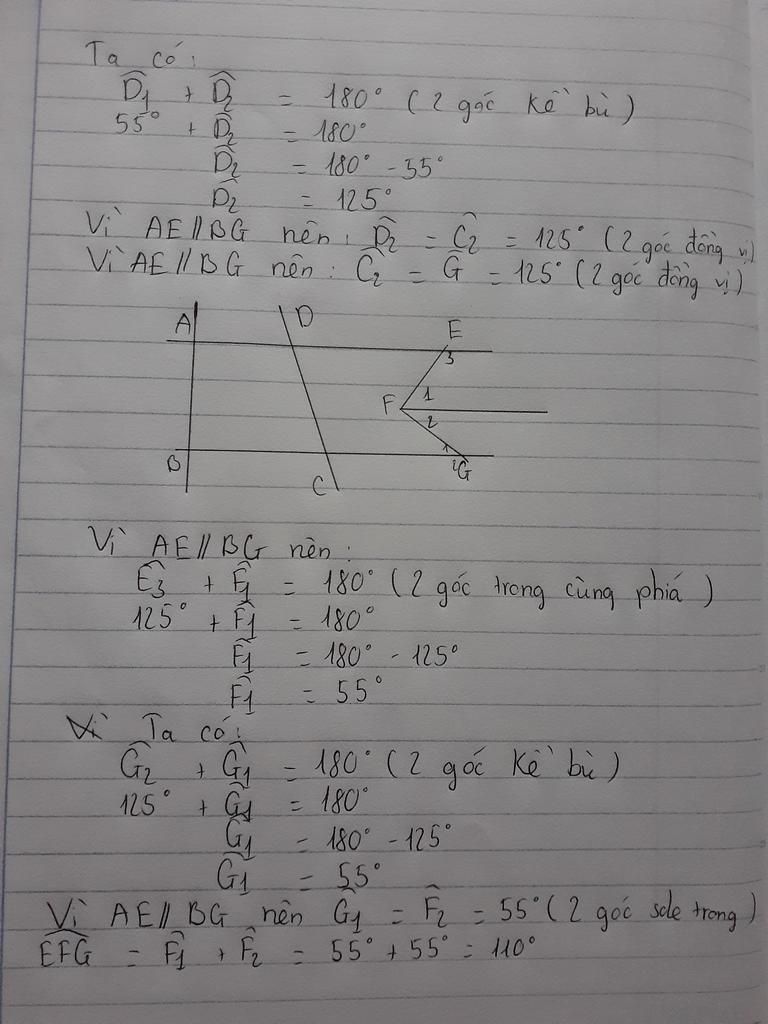 Ta có:
D̂1 + D̂2 = 180° (2 góc kề bù)
55° + D̂2 = 180°
D̂2 = 180° - 55°
D̂2 = 125°
Vì AE // BG nên: D̂2 = Ĉ2 = 125° (2 góc đồng vị)
Vì AE // BG nên: Ĉ2 = Ĝ = 125° (2 góc đồng vị)
A D E
3
F 1
2
B C 1 2 G
Vì AE // BG nên:
Ê3 + F̂1 = 180° (2 góc trong cùng phiá)
125° + F̂1 = 180°
F̂1 = 180° - 125°
F̂1 = 55°
Vì Ta có:
Ĝ2 + Ĝ1 = 180° (2 góc kề bù)
125° + Ĝ1 = 180°
Ĝ1 = 180° - 125°
Ĝ1 = 55°
Vì AE // BG nên Ĝ1 = F̂2 = 55° (2 góc sole trong)
EFG = F̂1 + F̂2 = 55° + 55° = 110°